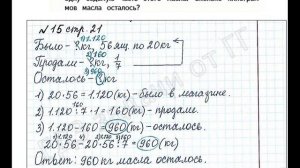 мов масла осталось?
№ 15 стр. 21
1) 1.120
Было - ? кг, 56 ящ. по 20 кг
2) 160
Продали - ? кг, 1/7
3) 960
Осталось - ? кг
1) 20·56 = 1.120 (кг) - было в магазине.
2) 1.120:7·1 = 160 (кг) - продали.
3) 1.120-160 = 960 (кг) - осталось.
20·56-20·56:7 = 960 (кг)
Ответ: 960 кг масла осталось.